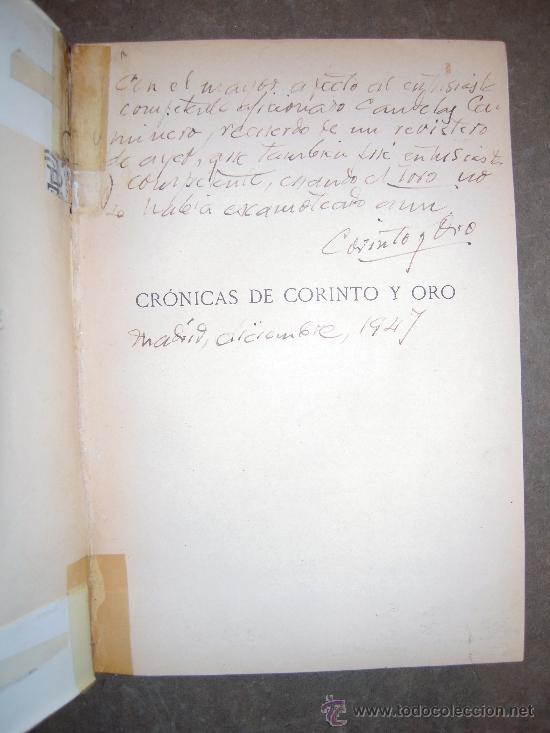 Con el mayor afecto al entusiasta
competente aficionado Candelas Ca-
minero, recuerdo de un revistero
de ayer, que también fué entusiasta
y competente, cuando el toro no
se había escamoteado aun
Corinto y Oro
CRÓNICAS DE CORINTO Y ORO
Madrid, diciembre, 1947
todocoleccion
www.todocoleccion.net